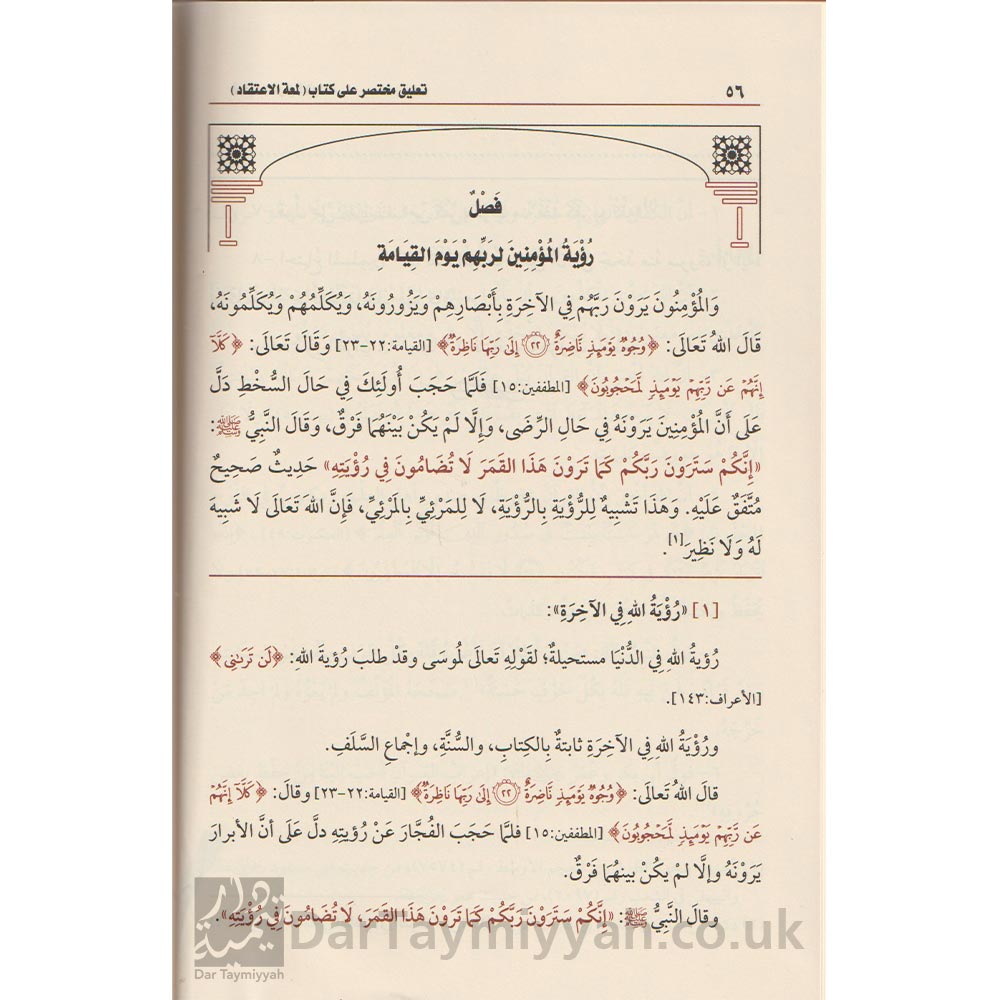 ٥٦
تعليق مختصر على كتاب (لمعة الاعتقاد)
فَصْلٌ
رُؤْيَةُ المُؤْمِنِينَ لِرَبِّهِمْ يَوْمَ القِيَامَةِ
وَالْمُؤْمِنُونَ يَرَوْنَ رَبَّهُمْ فِي الآخِرَةِ بِأَبْصَارِهِمْ وَيَزُورُونَهُ، وَيُكَلِّمُهُمْ وَيُكَلِّمُونَهُ،
قَالَ اللهُ تَعَالَى: ﴿وُجُوهٌ يَوْمَئِذٍ نَّاضِرَةٌ ٢٢ إِلَىٰ رَبِّهَا نَاظِرَةٌ﴾ [القيامة:٢٢-٢٣] وَقَالَ تَعَالَى: ﴿كَلَّا
إِنَّهُمْ عَن رَّبِّهِمْ يَوْمَئِذٍ لَّمَحْجُوبُونَ﴾ [المطففين:١٥] فَلَمَّا حَجَبَ أُولَئِكَ فِي حَالِ السُّخْطِ دَلَّ
عَلَى أَنَّ المُؤْمِنِينَ يَرَوْنَهُ فِي حَالِ الرِّضَى، وَإِلَّا لَمْ يَكُنْ بَيْنَهُمَا فَرْقٌ، وَقَالَ النَّبِيُّ ﷺ:
«إِنَّكُمْ سَتَرَوْنَ رَبَّكُمْ كَمَا تَرَوْنَ هَذَا القَمَرَ لَا تُضَامُونَ فِي رُؤْيَتِهِ» حَدِيثٌ صَحِيحٌ
مُتَّفَقٌ عَلَيْهِ. وَهَذَا تَشْبِيهٌ لِلرُّؤْيَةِ بِالرُّؤْيَةِ، لَا لِلمَرْئِيِّ بِالْمَرْئِيِّ، فَإِنَّ اللهَ تَعَالَى لَا شَبِيهَ
لَهُ وَلَا نَظِيرَ[١].
[١] «رُؤْيَةُ اللهِ فِي الآخِرَةِ»:
رُؤيةُ اللهِ فِي الدُّنْيَا مستحيلةٌ؛ لقَوْلِهِ تَعَالَى لُموسَى وقدْ طلبَ رُؤيةَ اللهِ: ﴿لَن تَرَىٰنِي﴾
[الأعراف:١٤٣].
ورُؤْيَةُ اللهِ فِي الآخِرَةِ ثابتةٌ بِالكِتابِ، والسُّنَّةِ، وإجْماعِ السَّلَفِ.
قالَ اللهُ تَعَالَى: ﴿وُجُوهٌ يَوْمَئِذٍ نَّاضِرَةٌ ٢٢ إِلَىٰ رَبِّهَا نَاظِرَةٌ﴾ [القيامة:٢٢-٢٣] وقالَ: ﴿كَلَّا إِنَّهُمْ
عَن رَّبِّهِمْ يَوْمَئِذٍ لَّمَحْجُوبُونَ﴾ [المطففين:١٥] فلمَّا حَجَبَ الفُجَّارَ عَنْ رُؤيتِهِ دلَّ عَلَى أنَّ الأبرارَ
يَرَوْنَهُ وإلَّا لمْ يكُنْ بينهُمَا فَرْقٌ.
وقالَ النَّبِيُّ ﷺ: «إِنَّكُمْ سَتَرَوْنَ رَبَّكُمْ كَمَا تَرَوْنَ هَذَا القَمَرَ، لَا تُضَامُونَ فِي رُؤْيَتِهِ».
دار تيمية
Dar Taymiyyah
DarTaymiyyah.co.uk